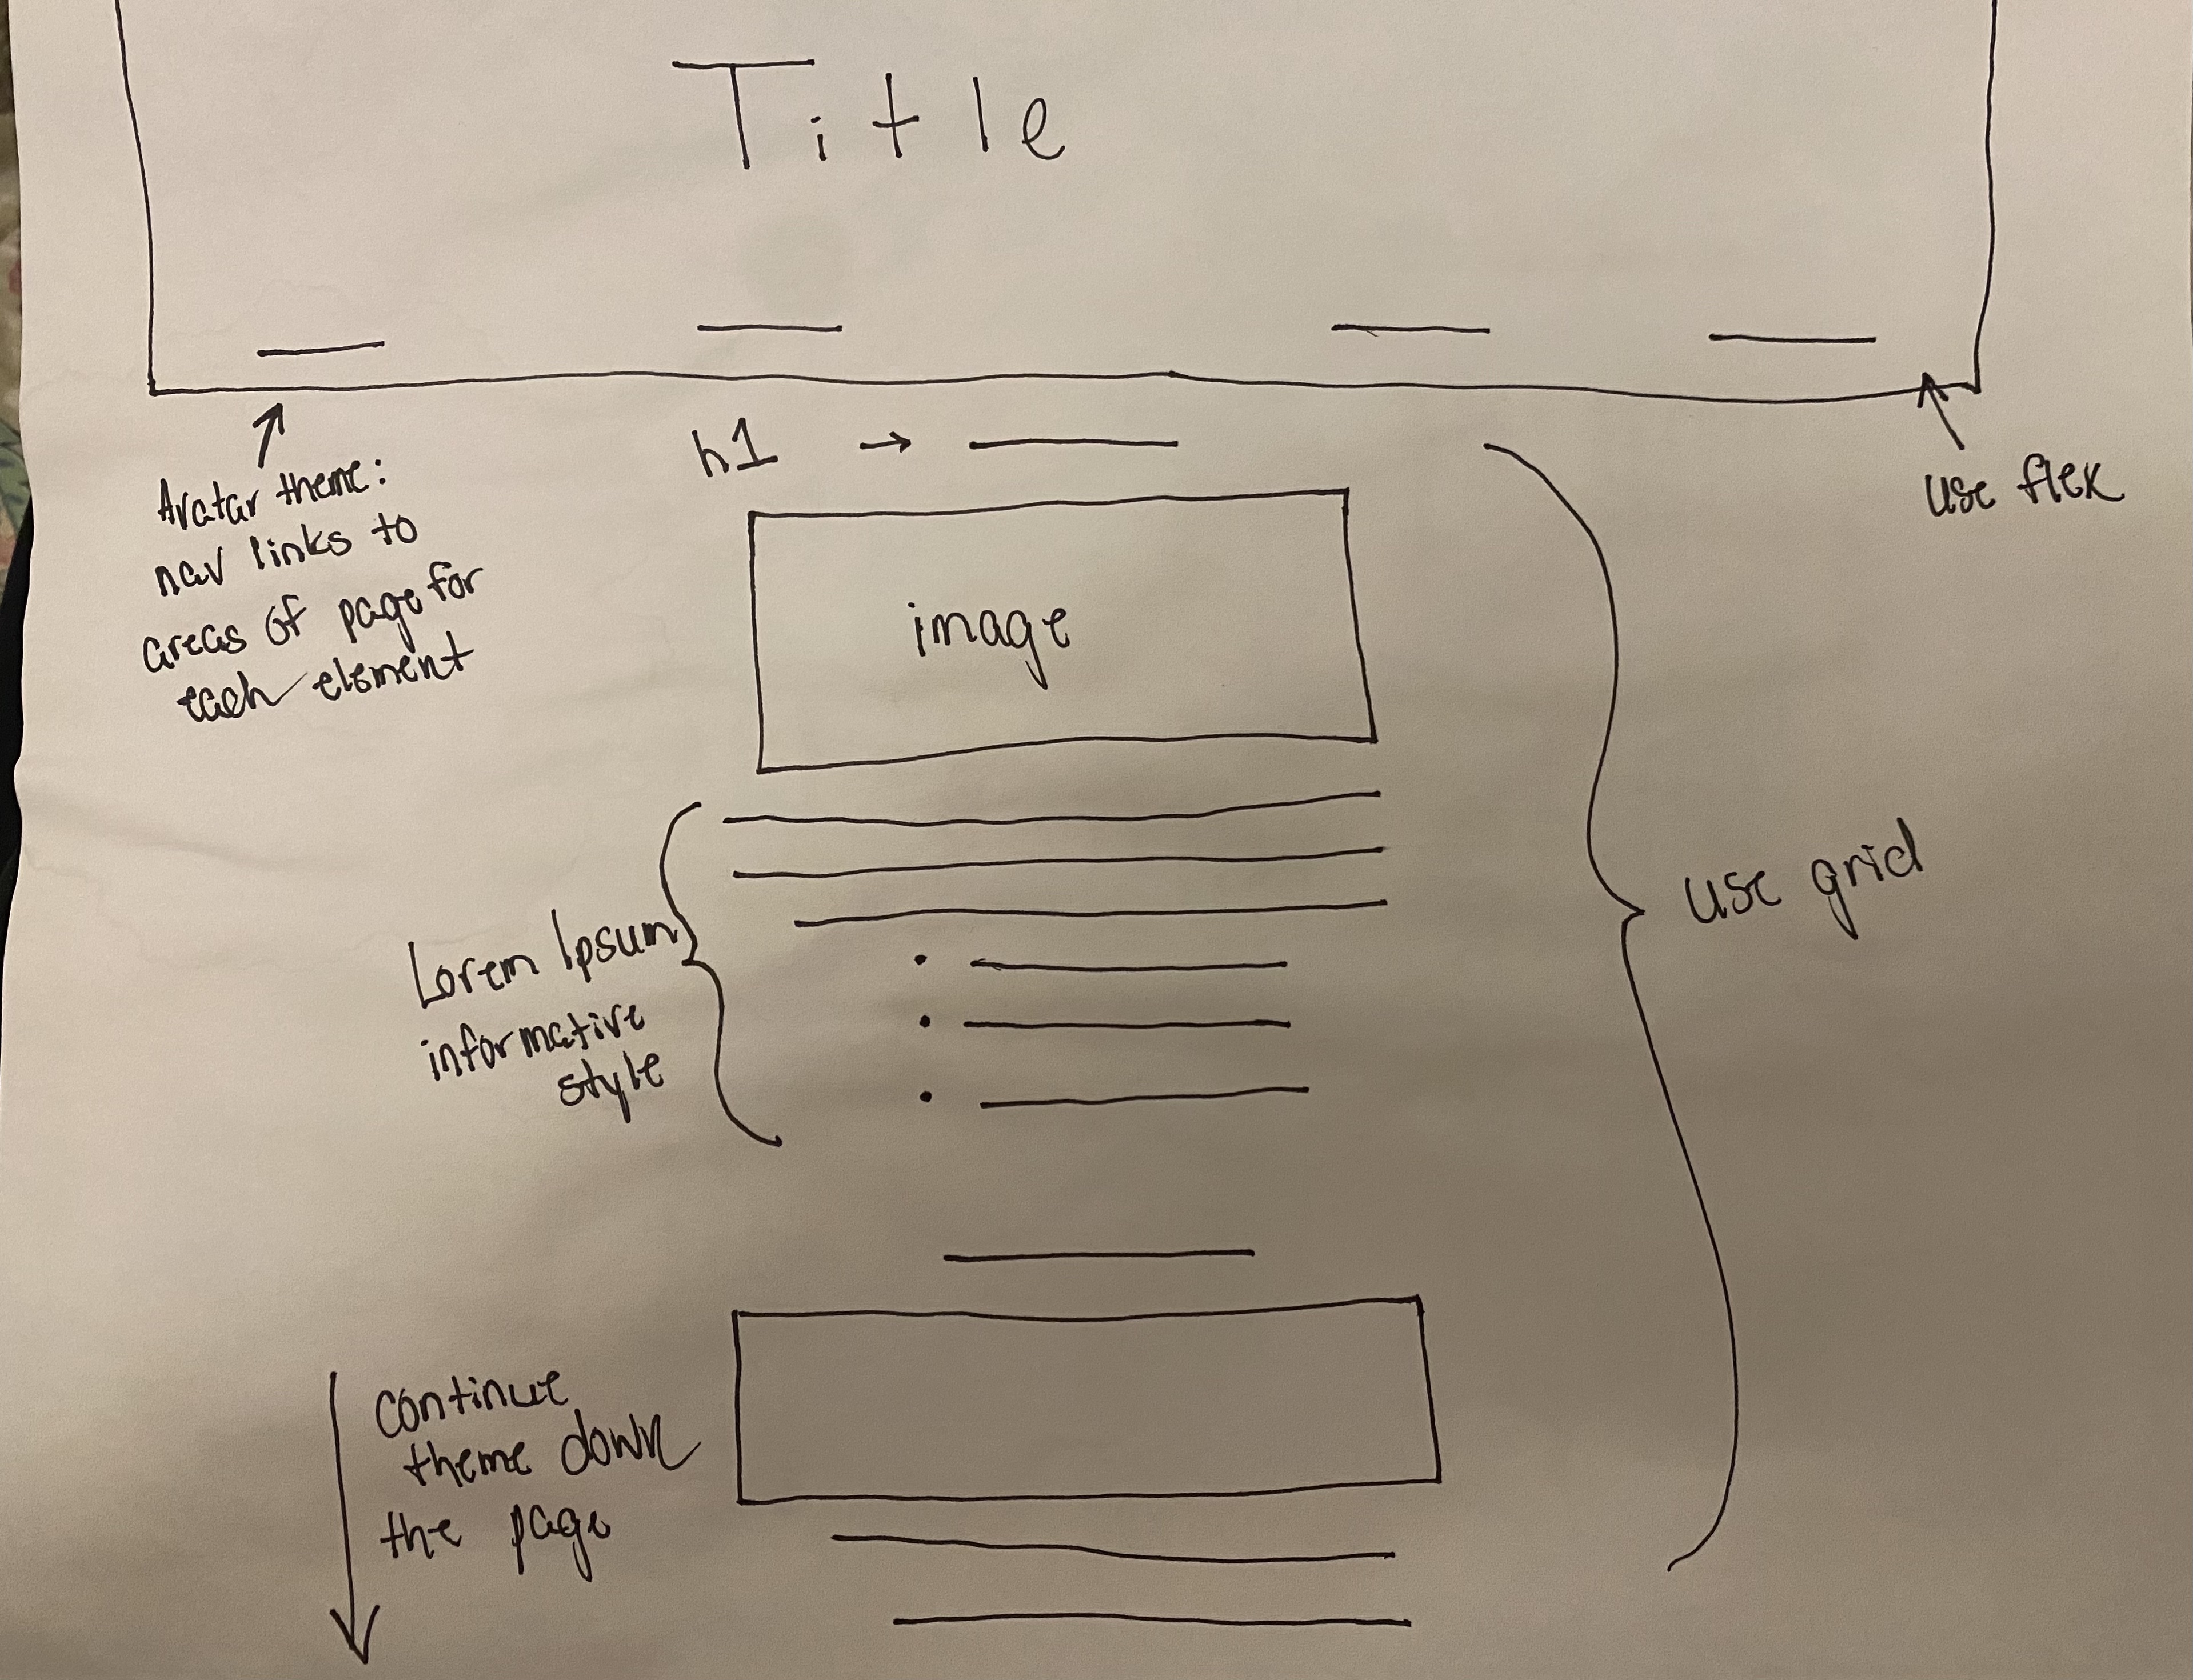 Title
h1 →
use flex
Avatar theme:
nav links to
areas of page for
each element
image
use grid
Lorem Ipsum
informative
style
continue
theme down
the page